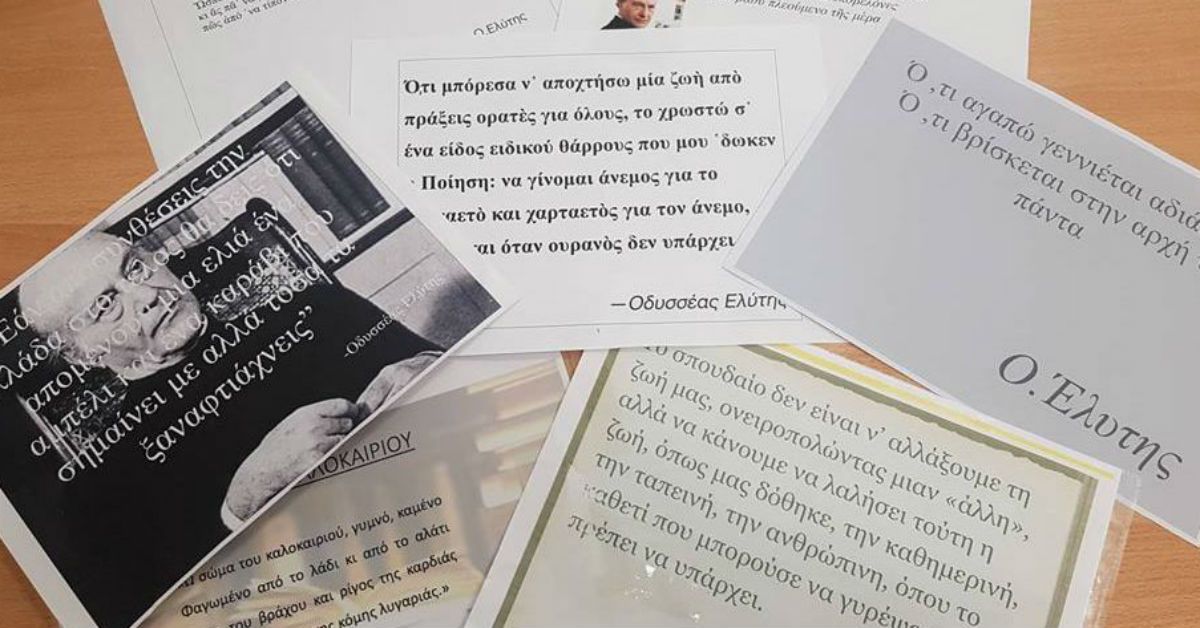 κι ἂς πᾶ
πῶς ἀπό 'να τίποτ
Ο.Ελύτης
πλεούμενο τῆς μέρα
Ό,τι μπόρεσα ν᾽ αποχτήσω μία ζωὴ απὸ
πράξεις ορατὲς για όλους, το χρωστώ σ᾽
ένα είδος ειδικού θάρρους που μου ᾽δωκεν
Ποίηση: να γίνομαι άνεμος για το
αετὸ και χαρταετὸς για τον άνεμο,
αι όταν ουρανὸς δεν υπάρχει
—Οδυσσέας Ελύτης
Ό ,τι αγαπώ γεννιέται αδιά
Ό ,τι βρίσκεται στην αρχή τ
πάντα
Ο. Έλυτης
υνθέσεις την
λάδα στο τέλος θα δεις ότι
απομένουν μια ελιά ένα
αμπέλι και ένα καράβι που
σημαίνει με αλλά τόσα τα
ξαναφτιάχνεις”
-Οδυσσέας Ελύτης
ΛΟΚΑΙΡΙΟΥ
σώμα του καλοκαιριού, γυμνό, καμένο
Φαγωμένο από το λάδι κι από το αλάτι
του βράχου και ρίγος της καρδιάς
κόμης λυγαριάς.»
Το σπουδαίο δεν είναι ν’ αλλάξουμε τη
ζωή μας, ονειροπολώντας μιαν «άλλη»,
αλλά να κάνουμε να λαλήσει τούτη η
ζωή, όπως μας δόθηκε, την καθημερινή,
την ταπεινή, την ανθρώπινη, όπου το
καθετί που μπορούσε να γυρέψ
πρέπει να υπάρχει.